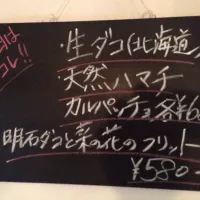 はコレ!!
・生ダコ(北海道
・天然ハマチ
カルパッチョ各¥6
明石ダコと菜の花のフリット
¥580-